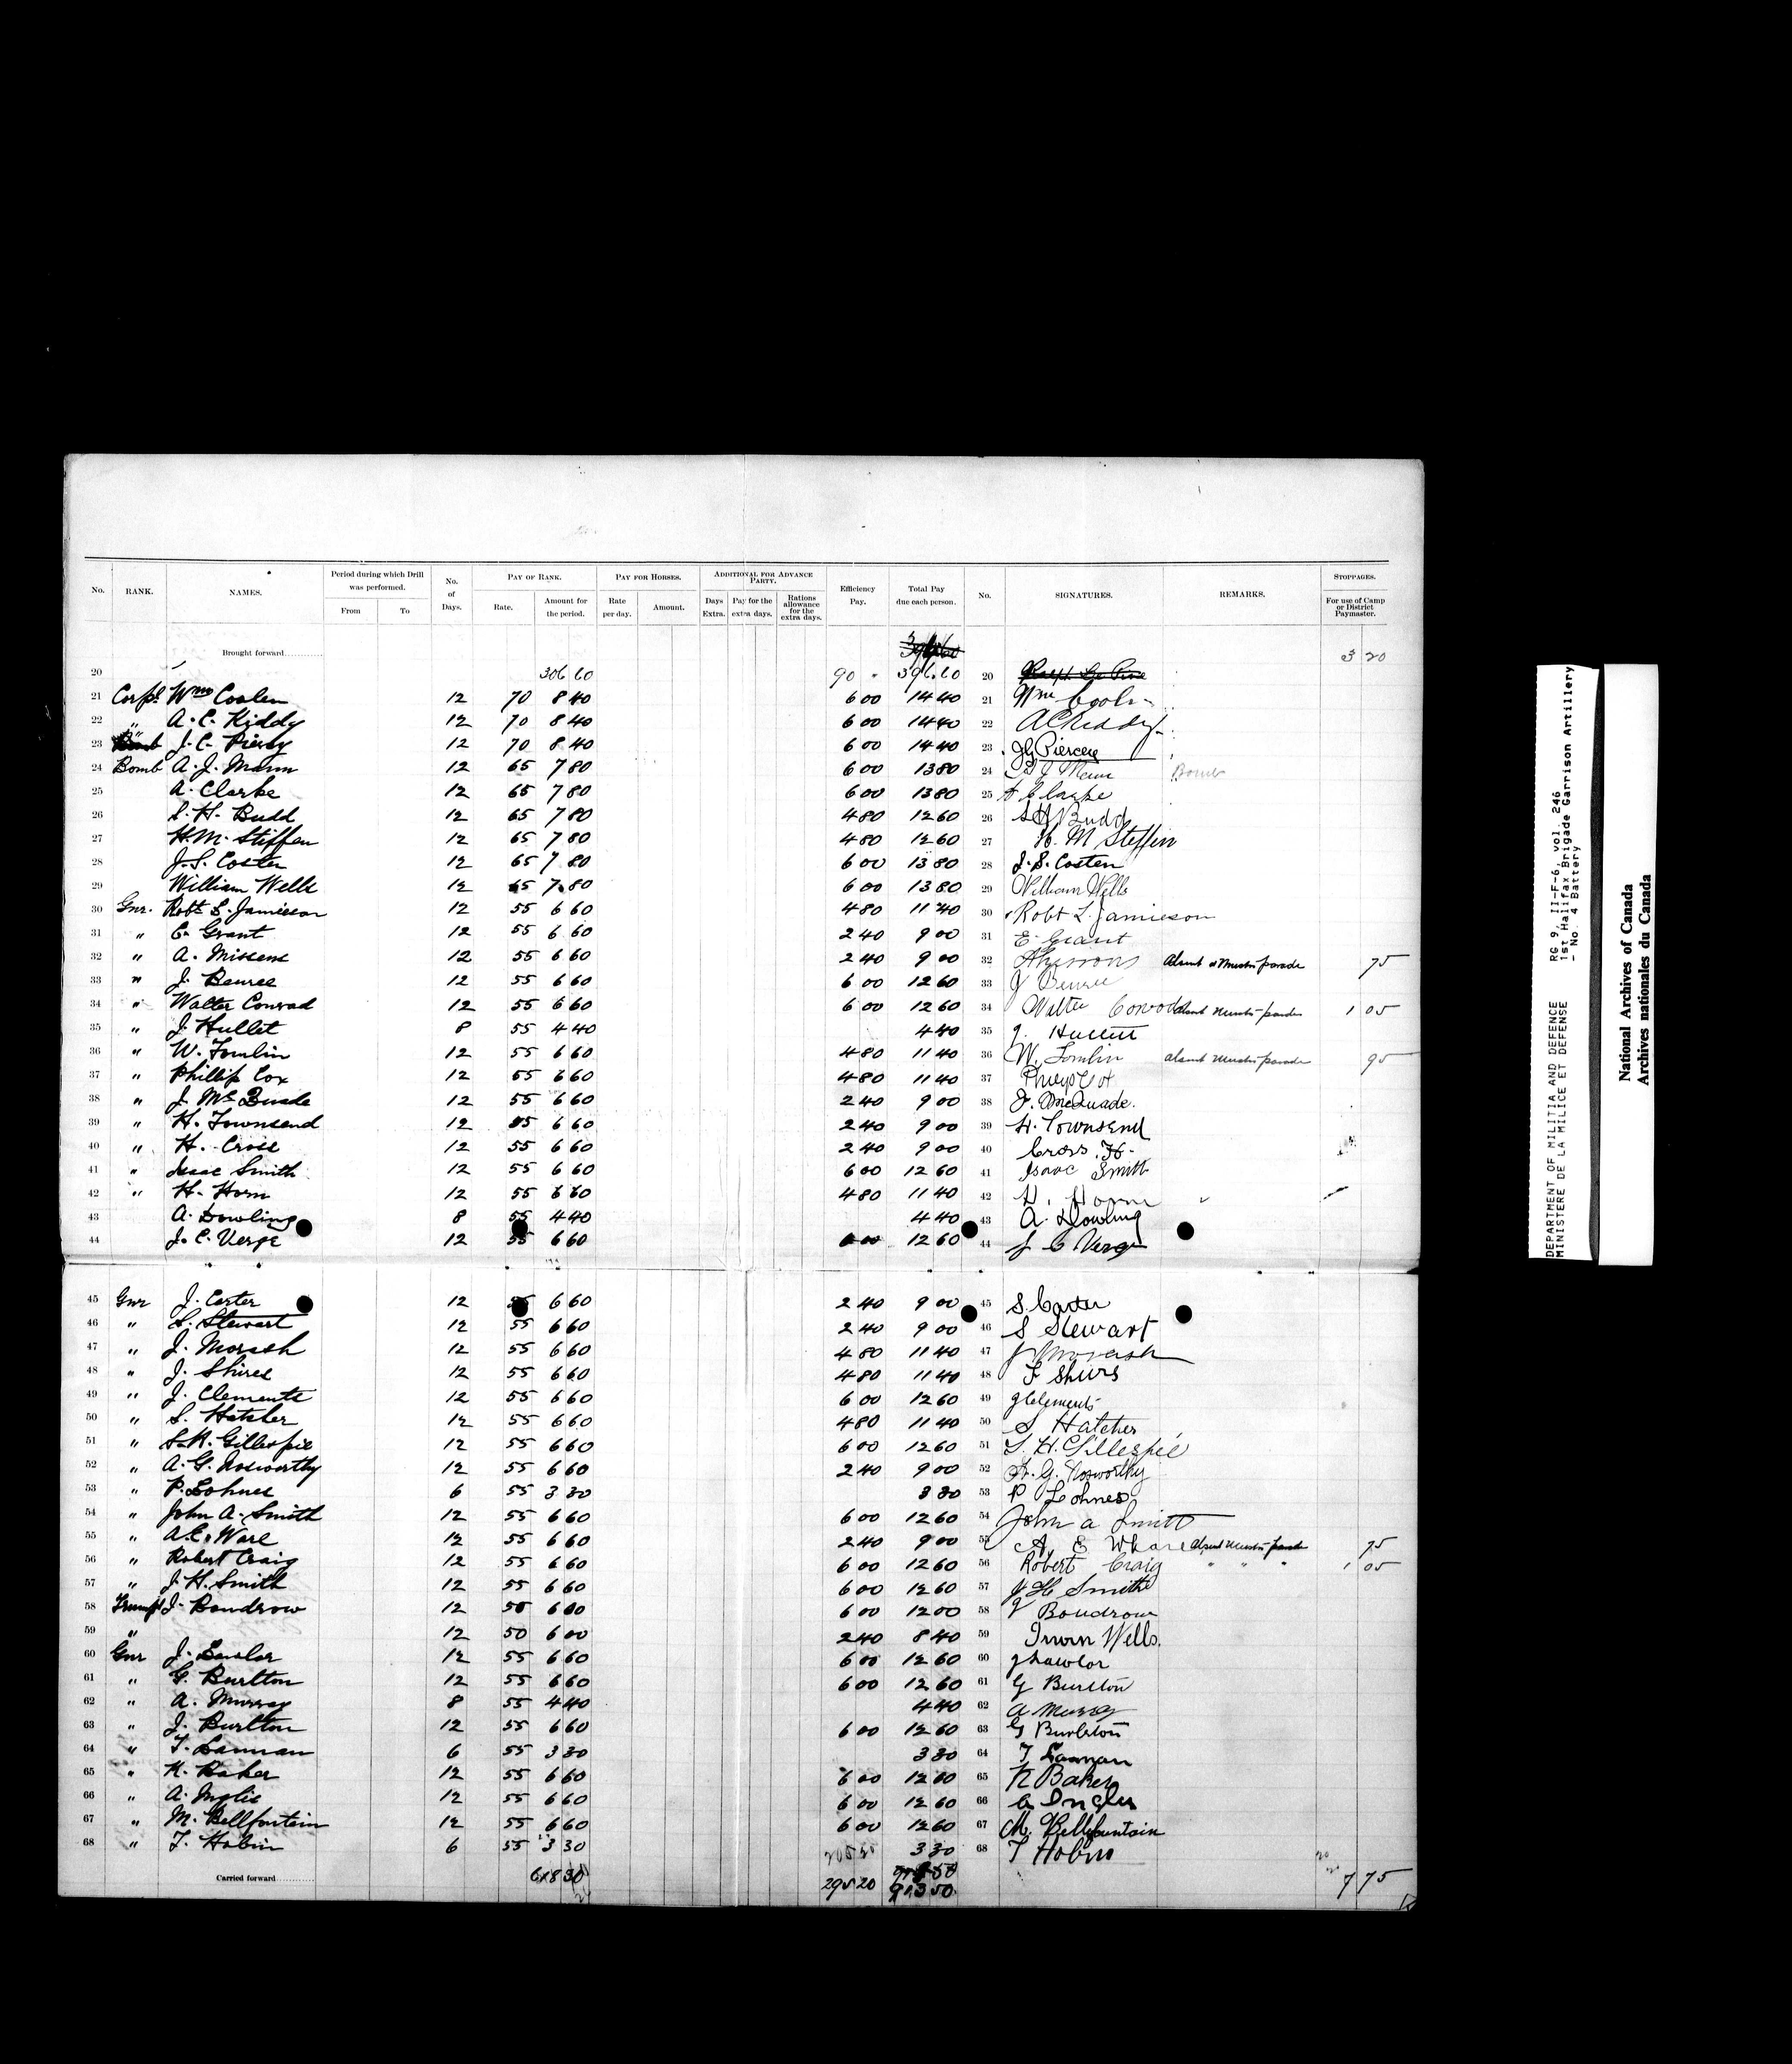 No. RANK. NAMES. Period during which Drill was performed. From To No. of Days. PAY OF RANK. Rate. Amount for the period. PAY FOR HORSES. Rate per day. Amount. ADDITIONAL FOR ADVANCE PARTY. Days Extra. Pay for the extra days. Rations allowance for the extra days. Efficiency Pay. Total Pay due each person. No. SIGNATURES. REMARKS. STOPPAGES. For use of Camp or District Paymaster.
Brought forward 3 20
20 306 60 90 396.60 20
21 Corpl Wm Coolen 12 70 8 40 6 00 14 40 21 Wm
22 " A. C. Kiddy 12 70 8 40 6 00 14 40 22 A C Kiddy
23 J. C. Piercy 12 70 8 40 6 00 14 40 23 Piercey
24 Bomb A. J. Mann 12 65 7 80 6 00 13 80 24 A J Mann Bomb
25 A. Clarke 12 65 7 80 6 00 13 80 25 A Clarke
26 S. H. Budd 12 65 7 80 4 80 12 60 26 S H Budd
27 H. M. Stiffen 12 65 7 80 4 80 12 60 27 H. M Steffin
28 J. S. Costen 12 65 7 80 6 00 13 80 28 J. S. Costen
29 William Wells 12 65 7 80 6 00 13 80 29 William Wells
30 Gnr. Robt L. Jamieson 12 55 6 60 4 80 11 40 30 Robt L. Jamieson
31 " E. Grant 12 55 6 60 2 40 9 00 31 E. Grant
32 " A. Missens 12 55 6 60 2 40 9 00 32 Absent at Muster parade 75
33 " J. Benree 12 55 6 60 6 00 12 60 33 J Benree
34 " Walter Conrad 12 55 6 60 6 00 12 60 34 Walter absent Muster parade 1 05
35 " J. Hullet 8 55 4 40 4 40 35 J. Hullett
36 " W. Tomlin 12 55 6 60 4 80 11 40 36 W. Tomlin absent Muster parade 95
37 " Phillip Cox 12 55 6 60 4 80 11 40 37
38 " J. McQuade 12 55 6 60 2 40 9 00 38 J. McQuade.
39 " H. Townsend 12 55 6 60 2 40 9 00 39 H. Townsend
40 " H. Cross 12 55 6 60 2 40 9 00 40 Cross. H.
41 " Isaac Smith 12 55 6 60 6 00 12 60 41 Isaac Smith
42 " H. Horn 12 55 6 60 4 80 11 40 42 H. Horne
43 A. Dowling 8 55 4 40 4 40 43 A. Dowling
44 J. C. Verge 12 55 6 60 6 00 12 60 44 J C Verge
45 Gnr J. Carter 12 55 6 60 2 40 9 00 45 S. Carter
46 " S. Stewart 12 55 6 60 2 40 9 00 46 S Stewart
47 " J. Morash 12 55 6 60 4 80 11 40 47 J Morash
48 " J. Shires 12 55 6 60 4 80 11 40 48 F Shiers
49 " J. Clements 12 55 6 60 6 00 12 60 49 J Clements
50 " S. Hatcher 12 55 6 60 4 80 11 40 50 S Hatcher
51 " S. H. Gillespie 12 55 6 60 6 00 12 60 51 S. H. Gillespie
52 " A. G. Nosworthy 12 55 6 60 2 40 9 00 52 A. G. Nosworthy
53 " P. Lohnes 6 55 3 30 3 30 53 P Lohnes
54 " John A. Smith 12 55 6 60 6 00 12 60 54 John a Smith
55 " A. E. Ware 12 55 6 60 2 40 9 00 55 A. E Whare absent Muster parade 75
56 " Robert Craig 12 55 6 60 6 00 12 60 56 Robert Craig " " " 1 05
57 " J. H. Smith 12 55 6 60 6 00 12 60 57 J H Smith
58 Trumpt J. Boudrow 12 50 6 00 6 00 12 00 58 J Boudrow
59 " 12 50 6 00 2 40 8 40 59 Irwin Wells.
60 Gnr J. Lawlor 12 55 6 60 6 00 12 60 60 J Lawlor
61 " G. Burlton 12 55 6 60 6 00 12 60 61 G Burlton
62 " A. Murray 8 55 4 40 4 40 62 A Murray
63 " J. Burlton 12 55 6 60 6 00 12 60 63 Burlton
64 " T. Lannan 6 55 3 30 3 30 64 T Lannan
65 " K. Baker 12 55 6 60 6 00 12 60 65 K Baker
66 " A. Inglis 12 55 6 60 6 00 12 60 66 A Inglis
67 " M. Bellfontein 12 55 6 60 6 00 12 60 67 M. Bellfountain
68 " T. Hobin 6 55 3 30 205 20 3 30 68 T Hobin
Carried forward 618 30 295 20 913 50 7 75
DEPARTMENT OF MILITIA AND DEFENCE RG 9, II-F-6, vol. 246
MINISTERE DE LA MILICE ET DEFENSE 1st Halifax Brigade Garrison Artillery
- No. 4 Battery
National Archives of Canada
Archives nationales du Canada